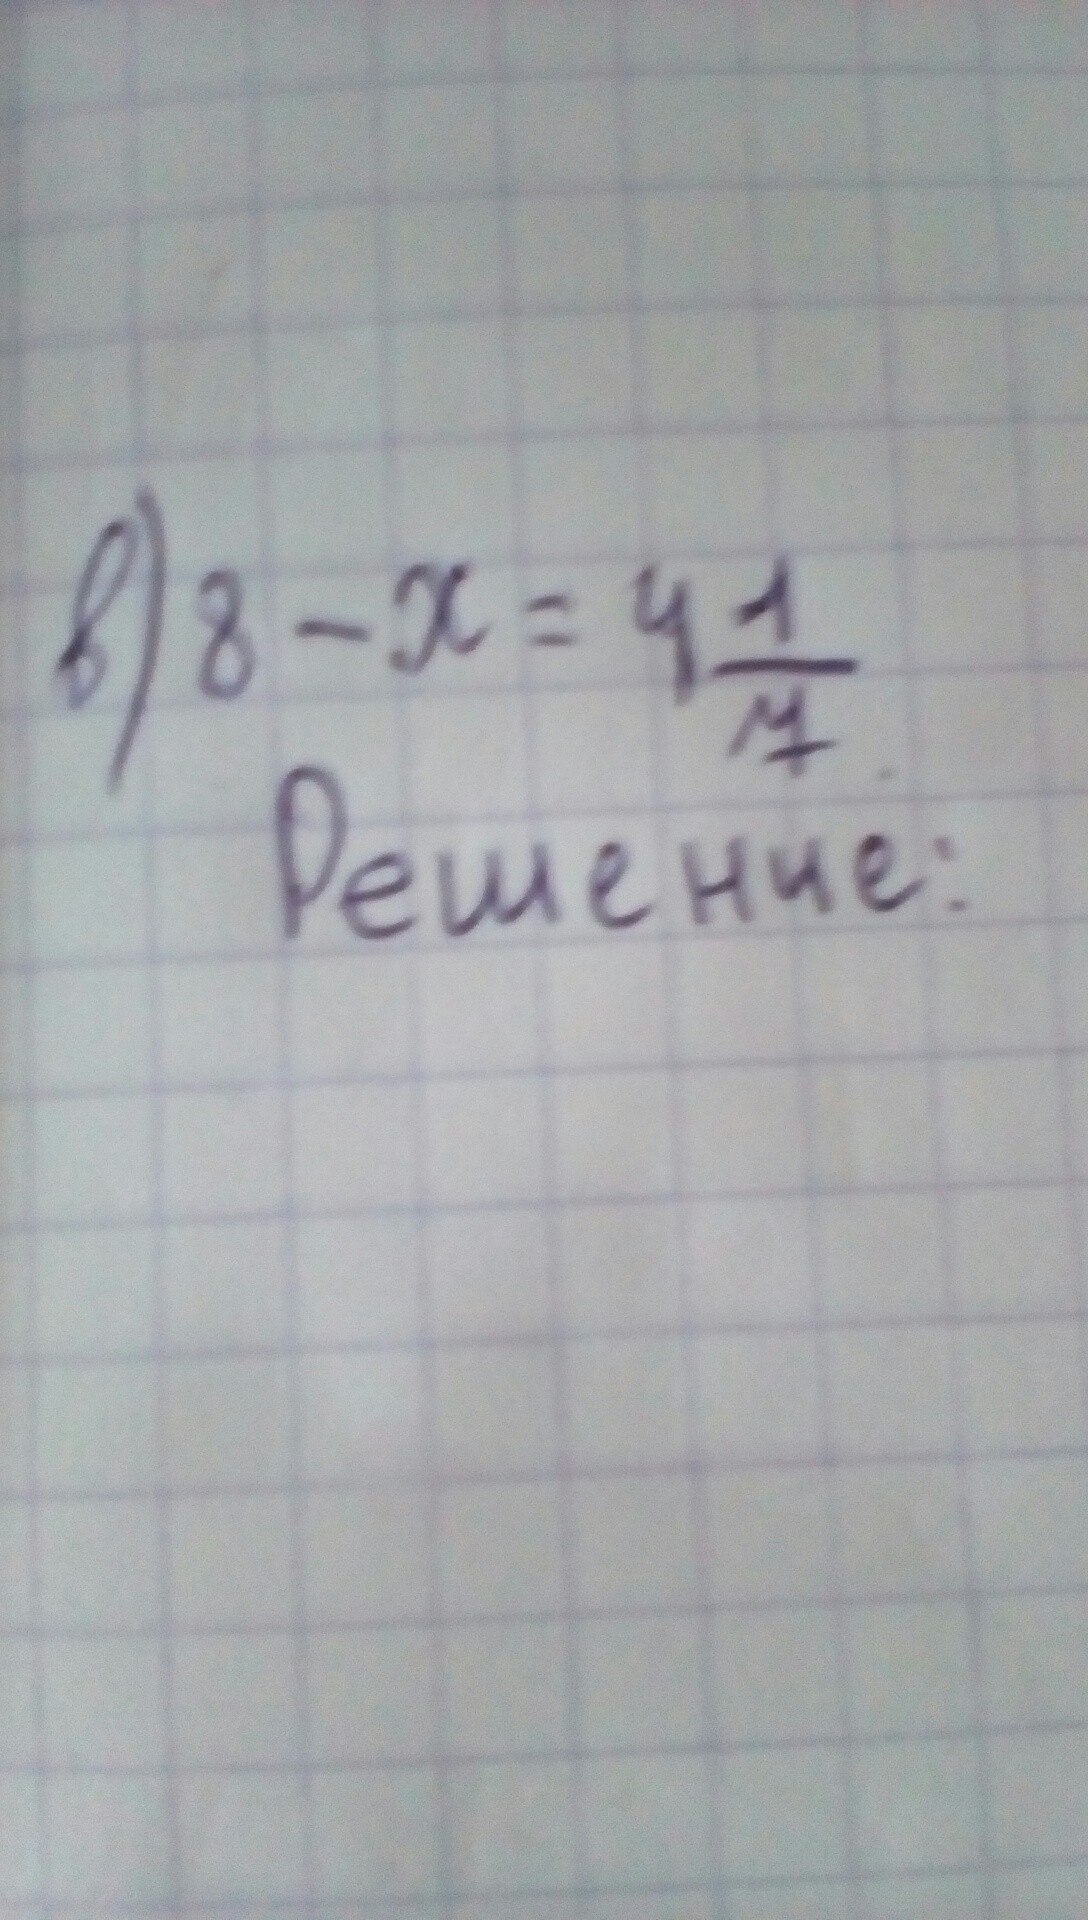 в) 8 - x = 4 1/7
Решение: